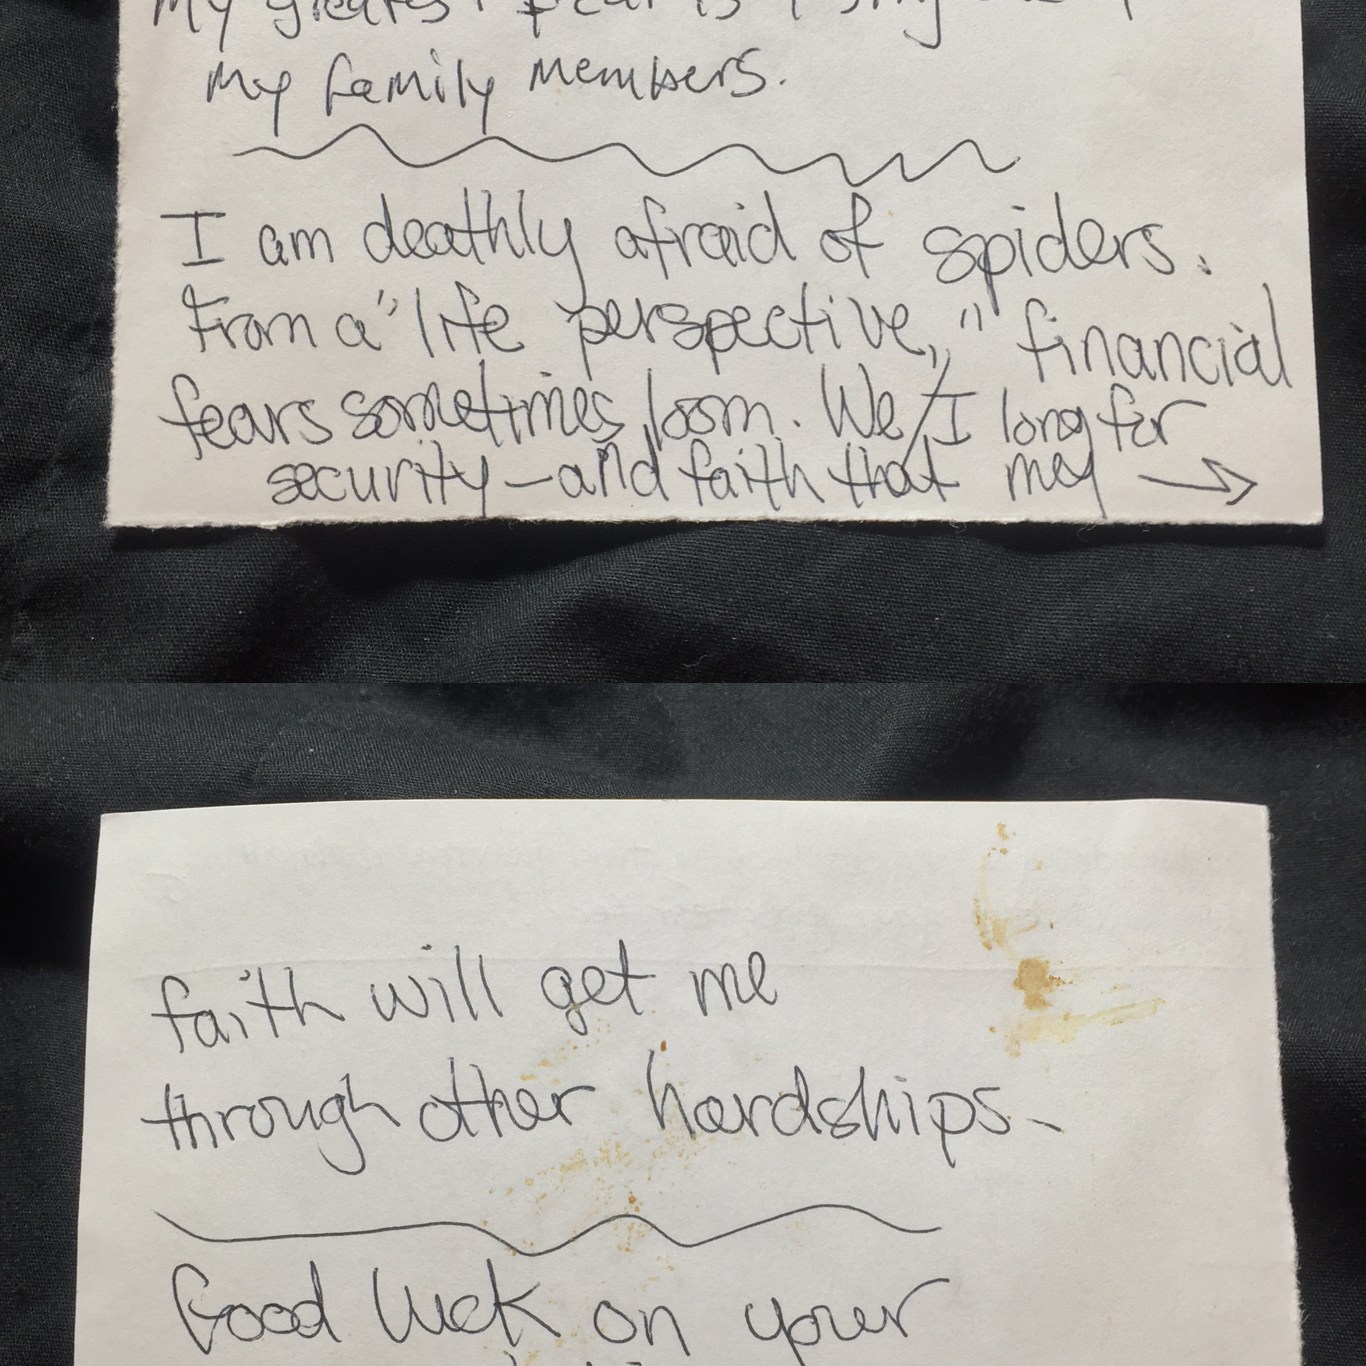 My greatest fear is
my family members.
I am deathly afraid of spiders.
From a "life perspective," financial
fears sometimes loom. We/I long for
security - and faith that my →
faith will get me
through other hardships.
Good luck on your